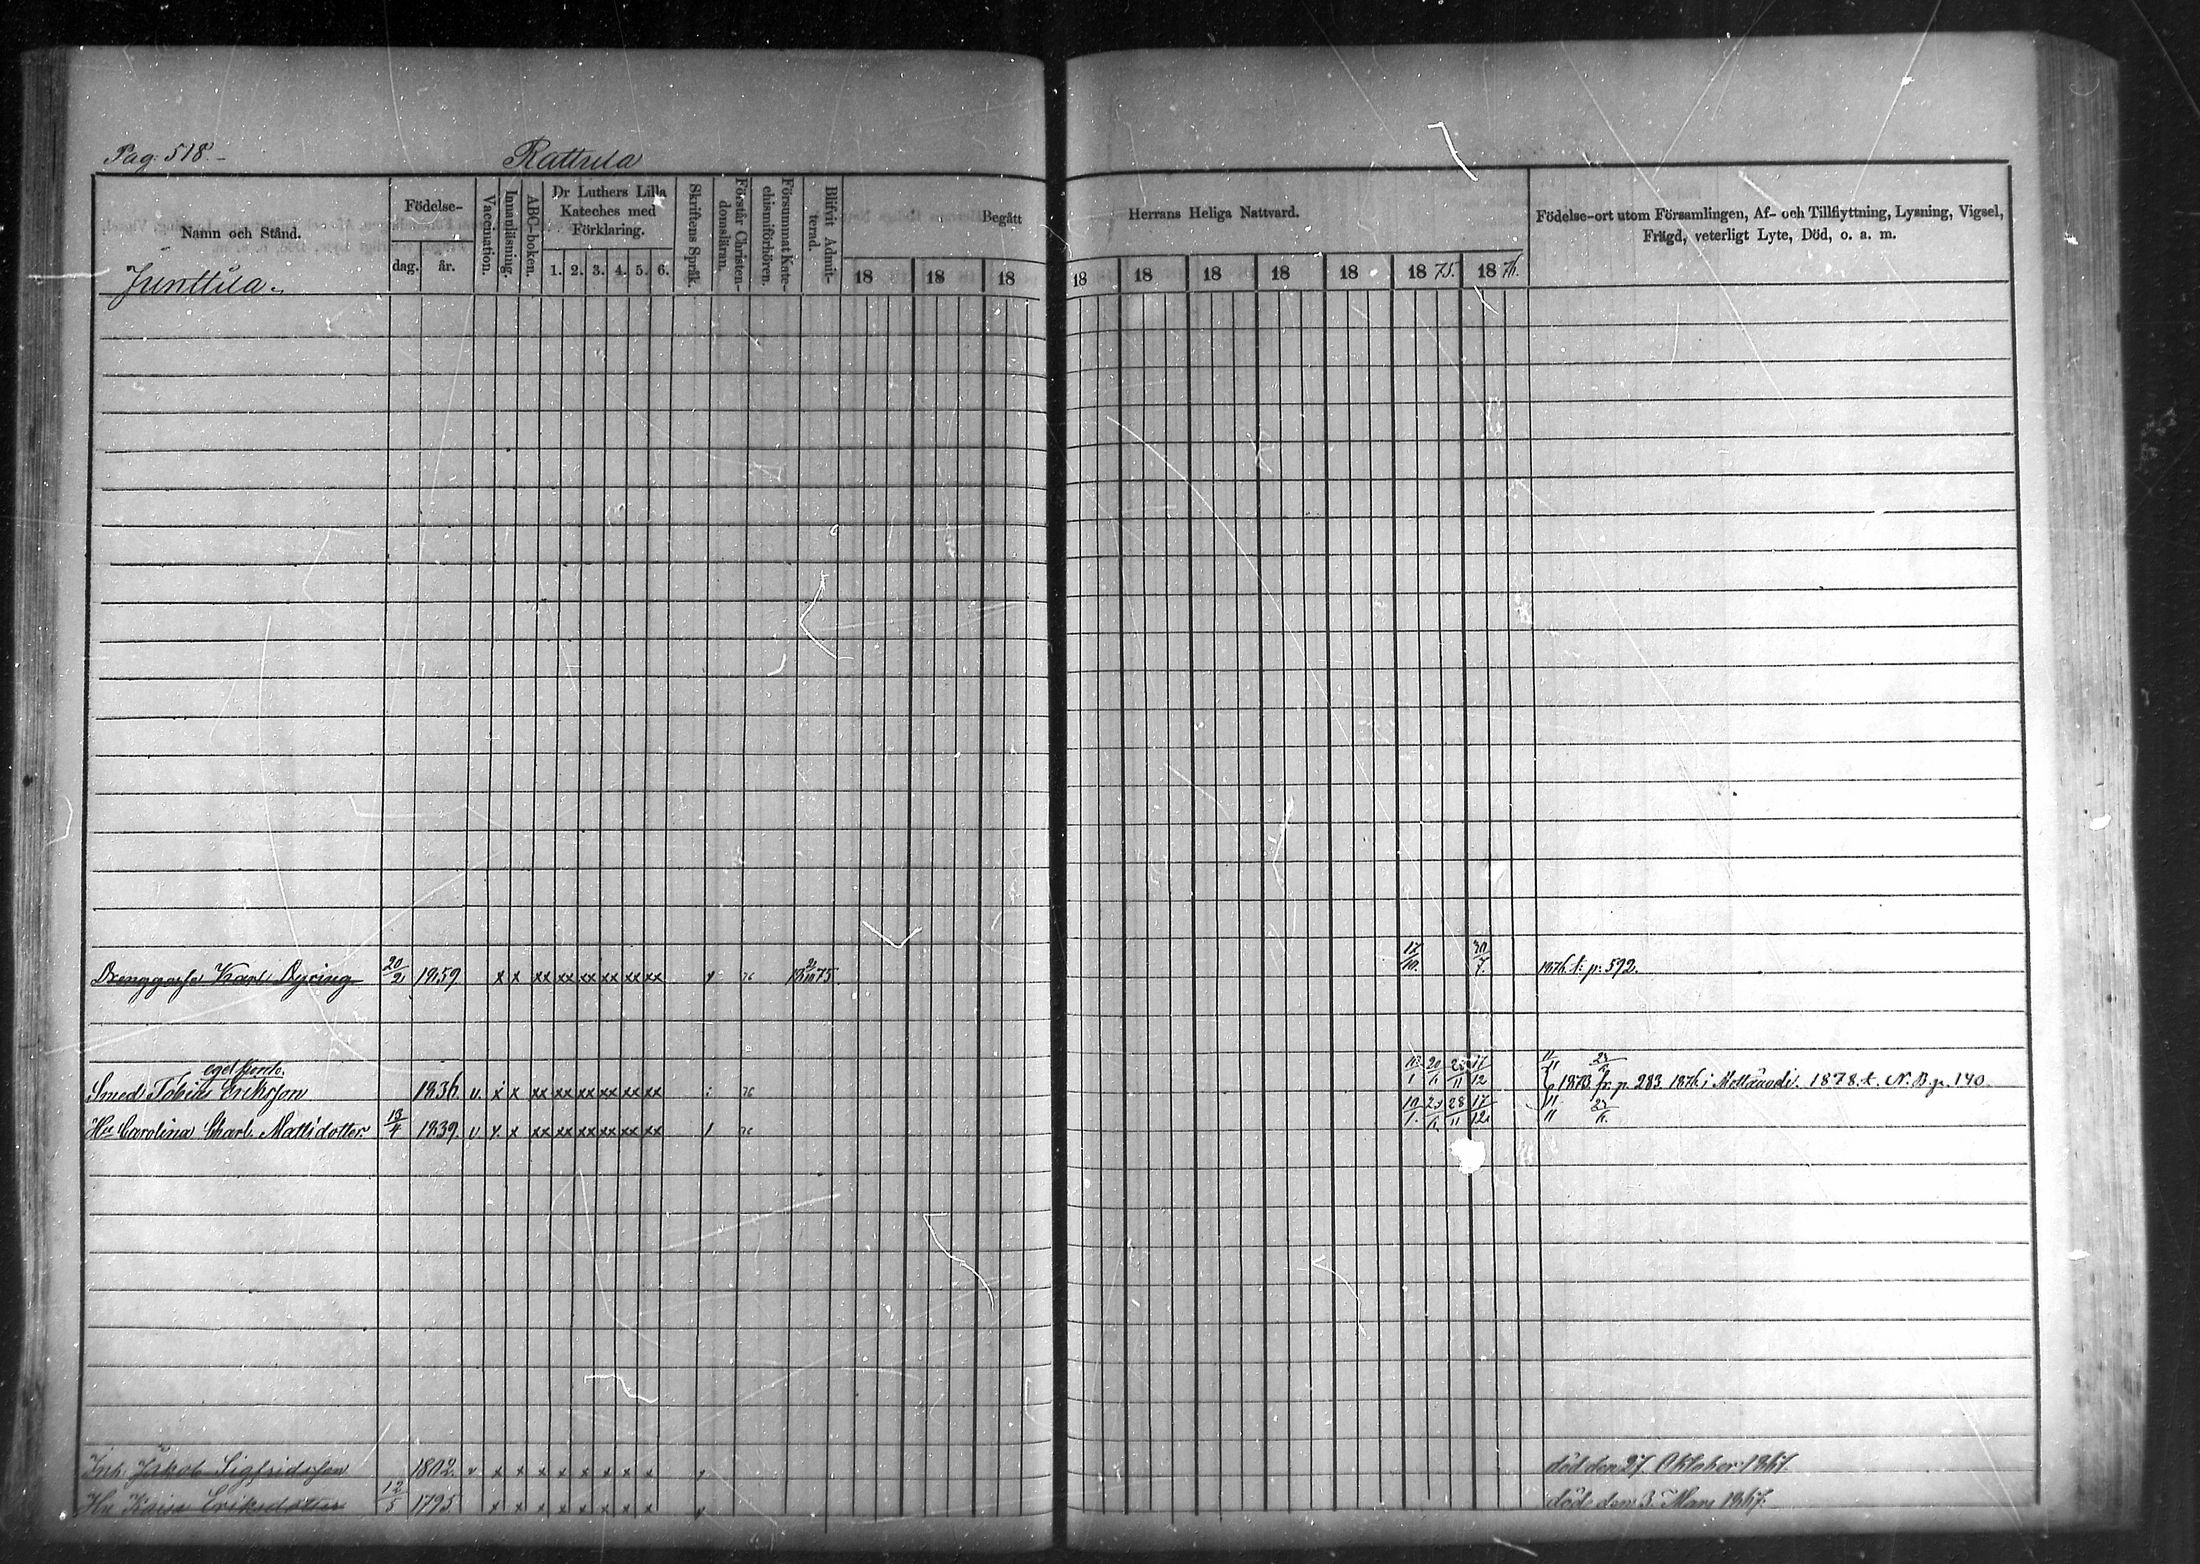 Pag: 518.
Rattula
Namn och Stånd.
Junttila.
Födelse-
dag. år.
Vaccination.
Innanläsning.
ABC-boken.
Dr Luthers Lilla
Kateches med
Förklaring.
1. 2. 3. 4. 5. 6.
Skriftens Språk.
Förstår Christen-
domsläran.
Försummat Kate-
chismiförhören.
Blifvit Admit-
terad.
Begått
18 18 18
Herrans Heliga Nattvard.
18 18 18 18 18 18 75. 18 76.
Födelse-ort utom Församlingen, Af- och Tillflyttning, Lysning, Vigsel,
Frägd, veterligt Lyte, Död, o. a. m.
Karl 20/2 1859. x x xx xx xx xx xx xx 76 17/10. 30/7. 1876 t. p. 592.
Smed Tobias Eriksson 1836. v. x x xx xx xx xx xx xx 76 1873 fr. p. 283 1876 i 1878. t. N. B. p. 140.
Hu Carolina Charl. Mattsdotter 13/4 1839. v x x xx xx xx xx xx xx 76
Inh. Jakob Sigfridsson 1802. v x x x x x x x x död den 27 Oktober 1867
Hu Kaisa Eriksdotter 12/5 1795. x x x x x x x x död den 3. Mars 1867.